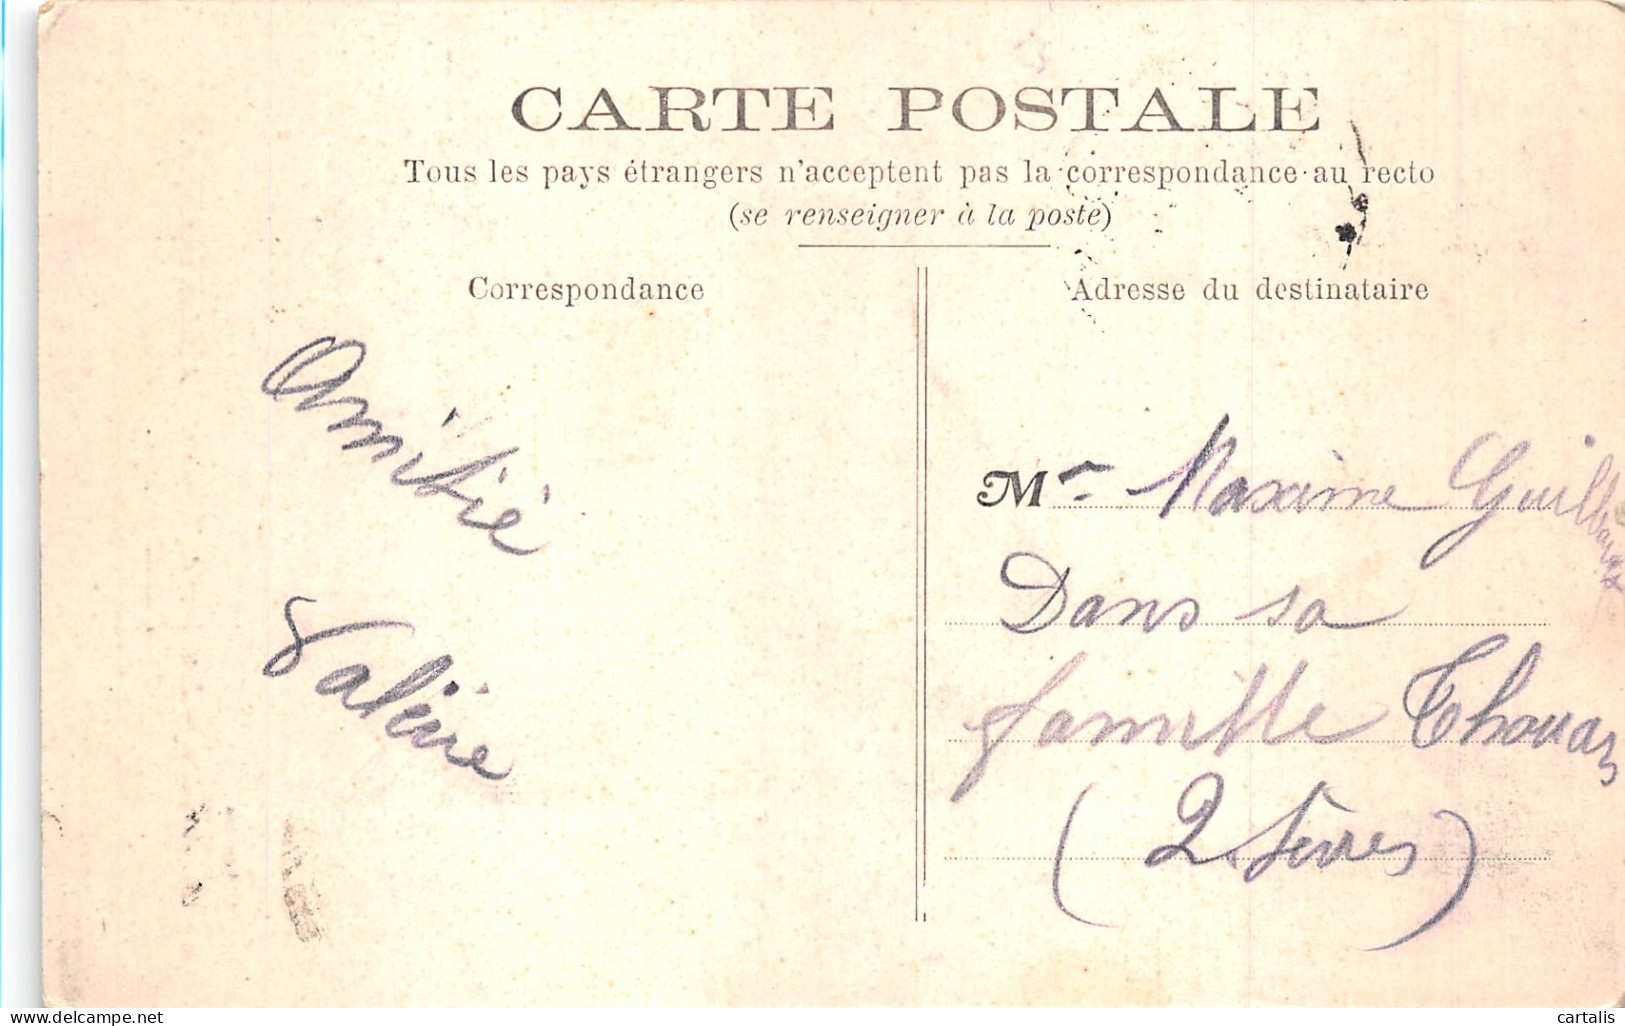 CARTE POSTALE
Tous les pays étrangers n'acceptent pas la correspondance au recto
(se renseigner à la poste)
Correspondance
Adresse du destinataire
Amitié
Valérie
Mr Maxime
Dans sa
famille Thouars
(2 Sèvres)
delcampe.net
cartalis